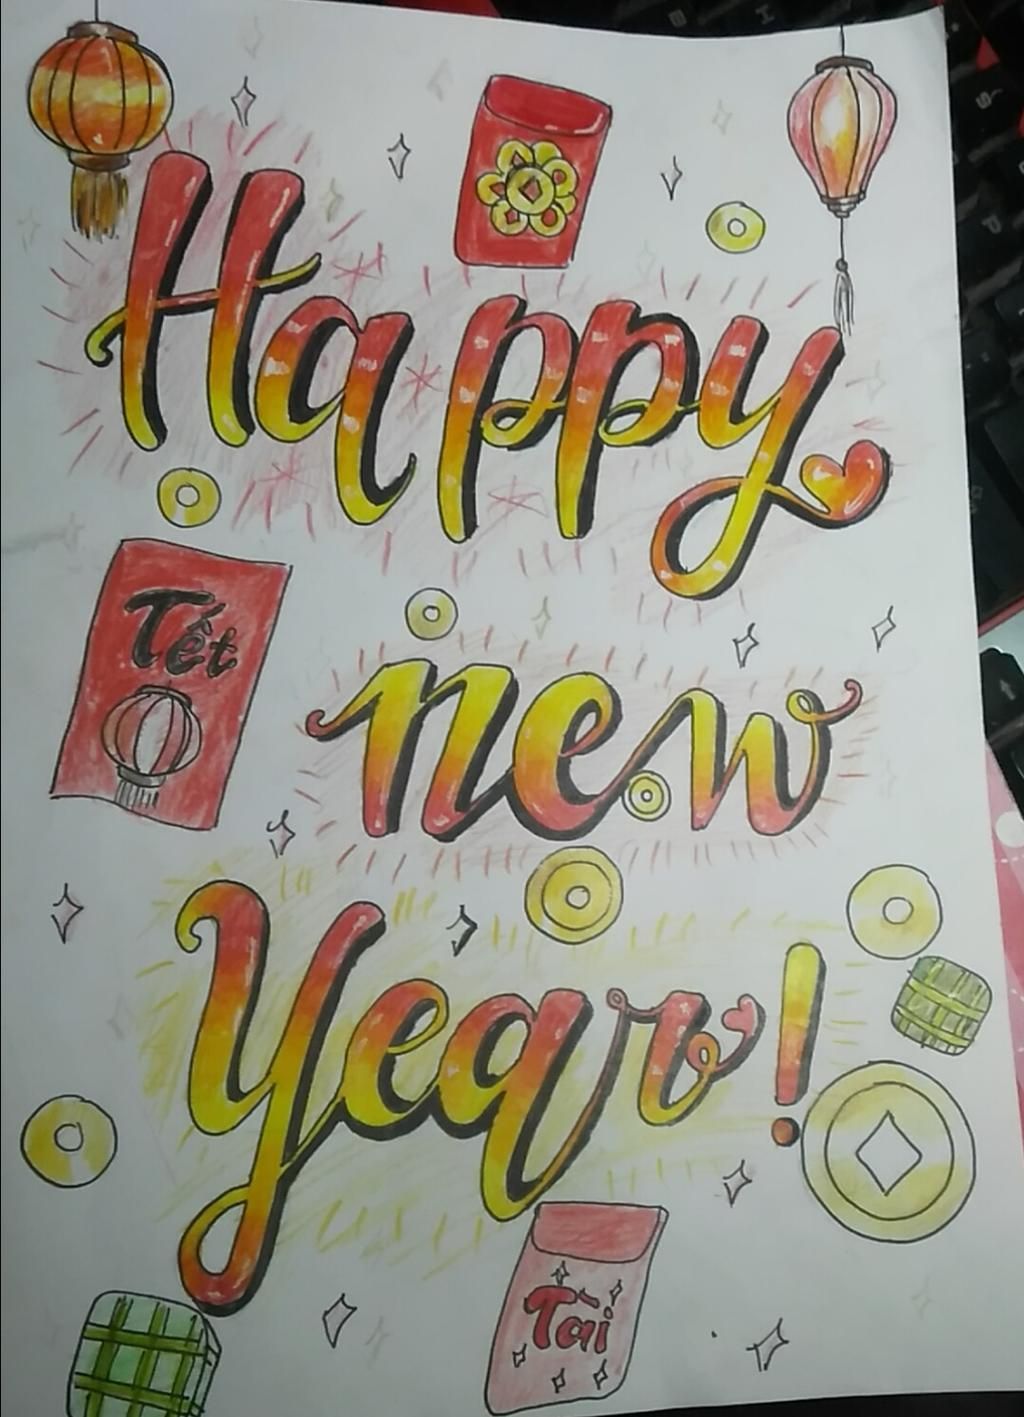 Happy
Tết
new
Year!
Tài